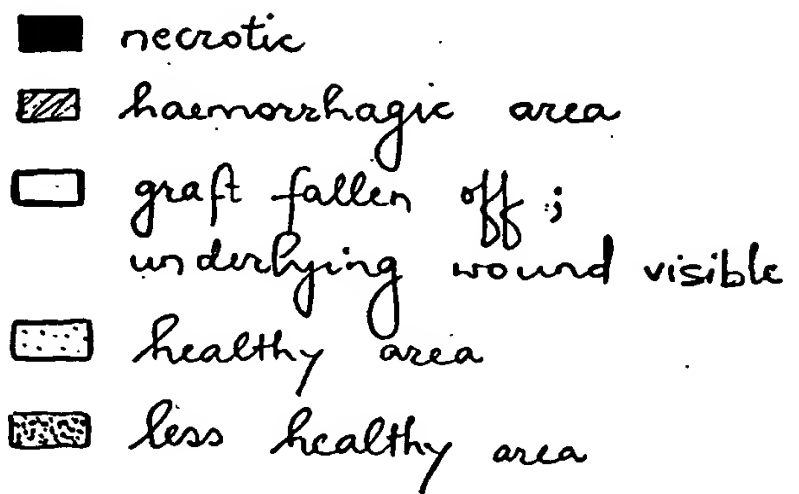 necrotic
haemorrhagic area
graft fallen off ;
underlying wound visible
healthy area
less healthy area